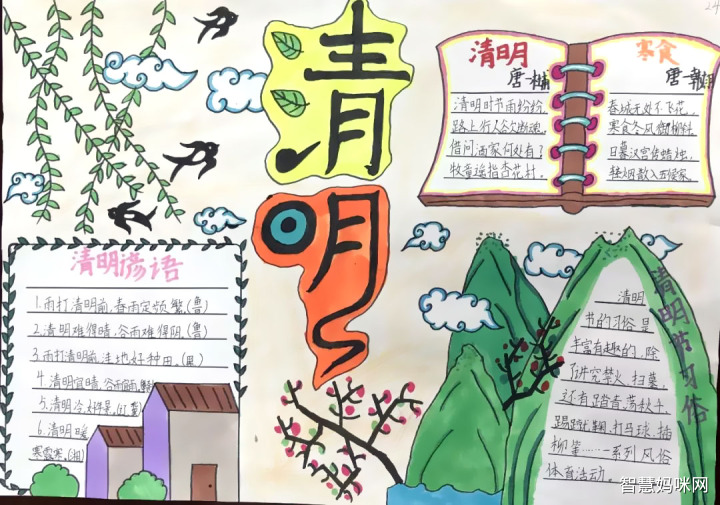 清明
清明
唐·杜牧
清明时节雨纷纷,
路上行人欲断魂。
借问酒家何处有?
牧童遥指杏花村。
寒食
唐·韩翃
春城无处不飞花,
寒食东风御柳斜。
日暮汉宫传蜡烛,
轻烟散入五侯家。
清明谚语
1.雨打清明前,春雨定频繁。(鲁)
2.清明难得晴,谷雨难得阴。(鲁)
3.雨打清明前,洼地好种田。(黑)
4.清明宜晴,谷雨宜雨。
5.清明冷,好年景。(辽、冀)
6.清明暖,
寒露寒。(湘)
清明节习俗
清明
节的习俗是
丰富有趣的,除
了讲究禁火、扫墓,
还有踏青、荡秋千、
踢蹴鞠、打马球、插
柳等……一系列风俗
体育活动。
智慧妈咪网